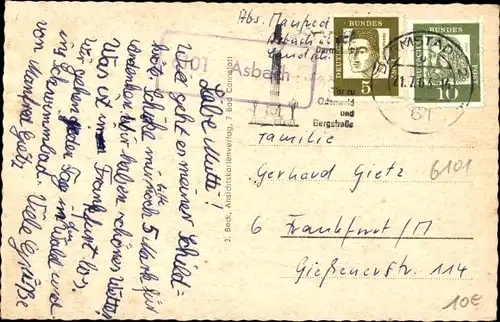 Liebe Mutti!
Wie geht es meiner Schild-
kröte? Schicke mir bitte noch 5 Mark für
Andenken. Wir haben schönes Wetter.
Was ist in Frankfurt los,
wir gehen jeden Tag in den Wald und
ins Schwimmbad. Viele Grüße
von Manfred Gietz
J. Beck, Ansichtskartenverlag, 7 Bad Cannstatt
Abs. Manfred
Asbach
6101 Asbach
DEUTSCHE BUNDESPOST
5
DEUTSCHE BUNDESPOST
10
DARMSTADT
61
Odenwald
und
Bergstraße
Familie
Gerhard Gietz
6101
6 Frankfurt/M
Gießenerstr. 114
10€